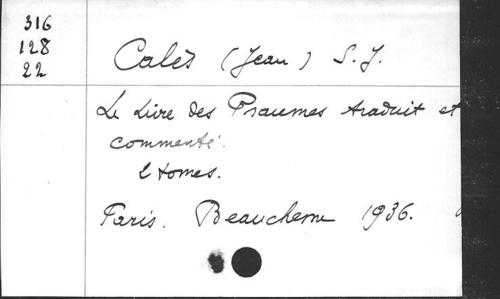 316
128
22
Calès (Jean) S. J.
Le Livre des Psaumes traduit et
commenté.
2 tomes.
Paris. Beauchesne 1936.